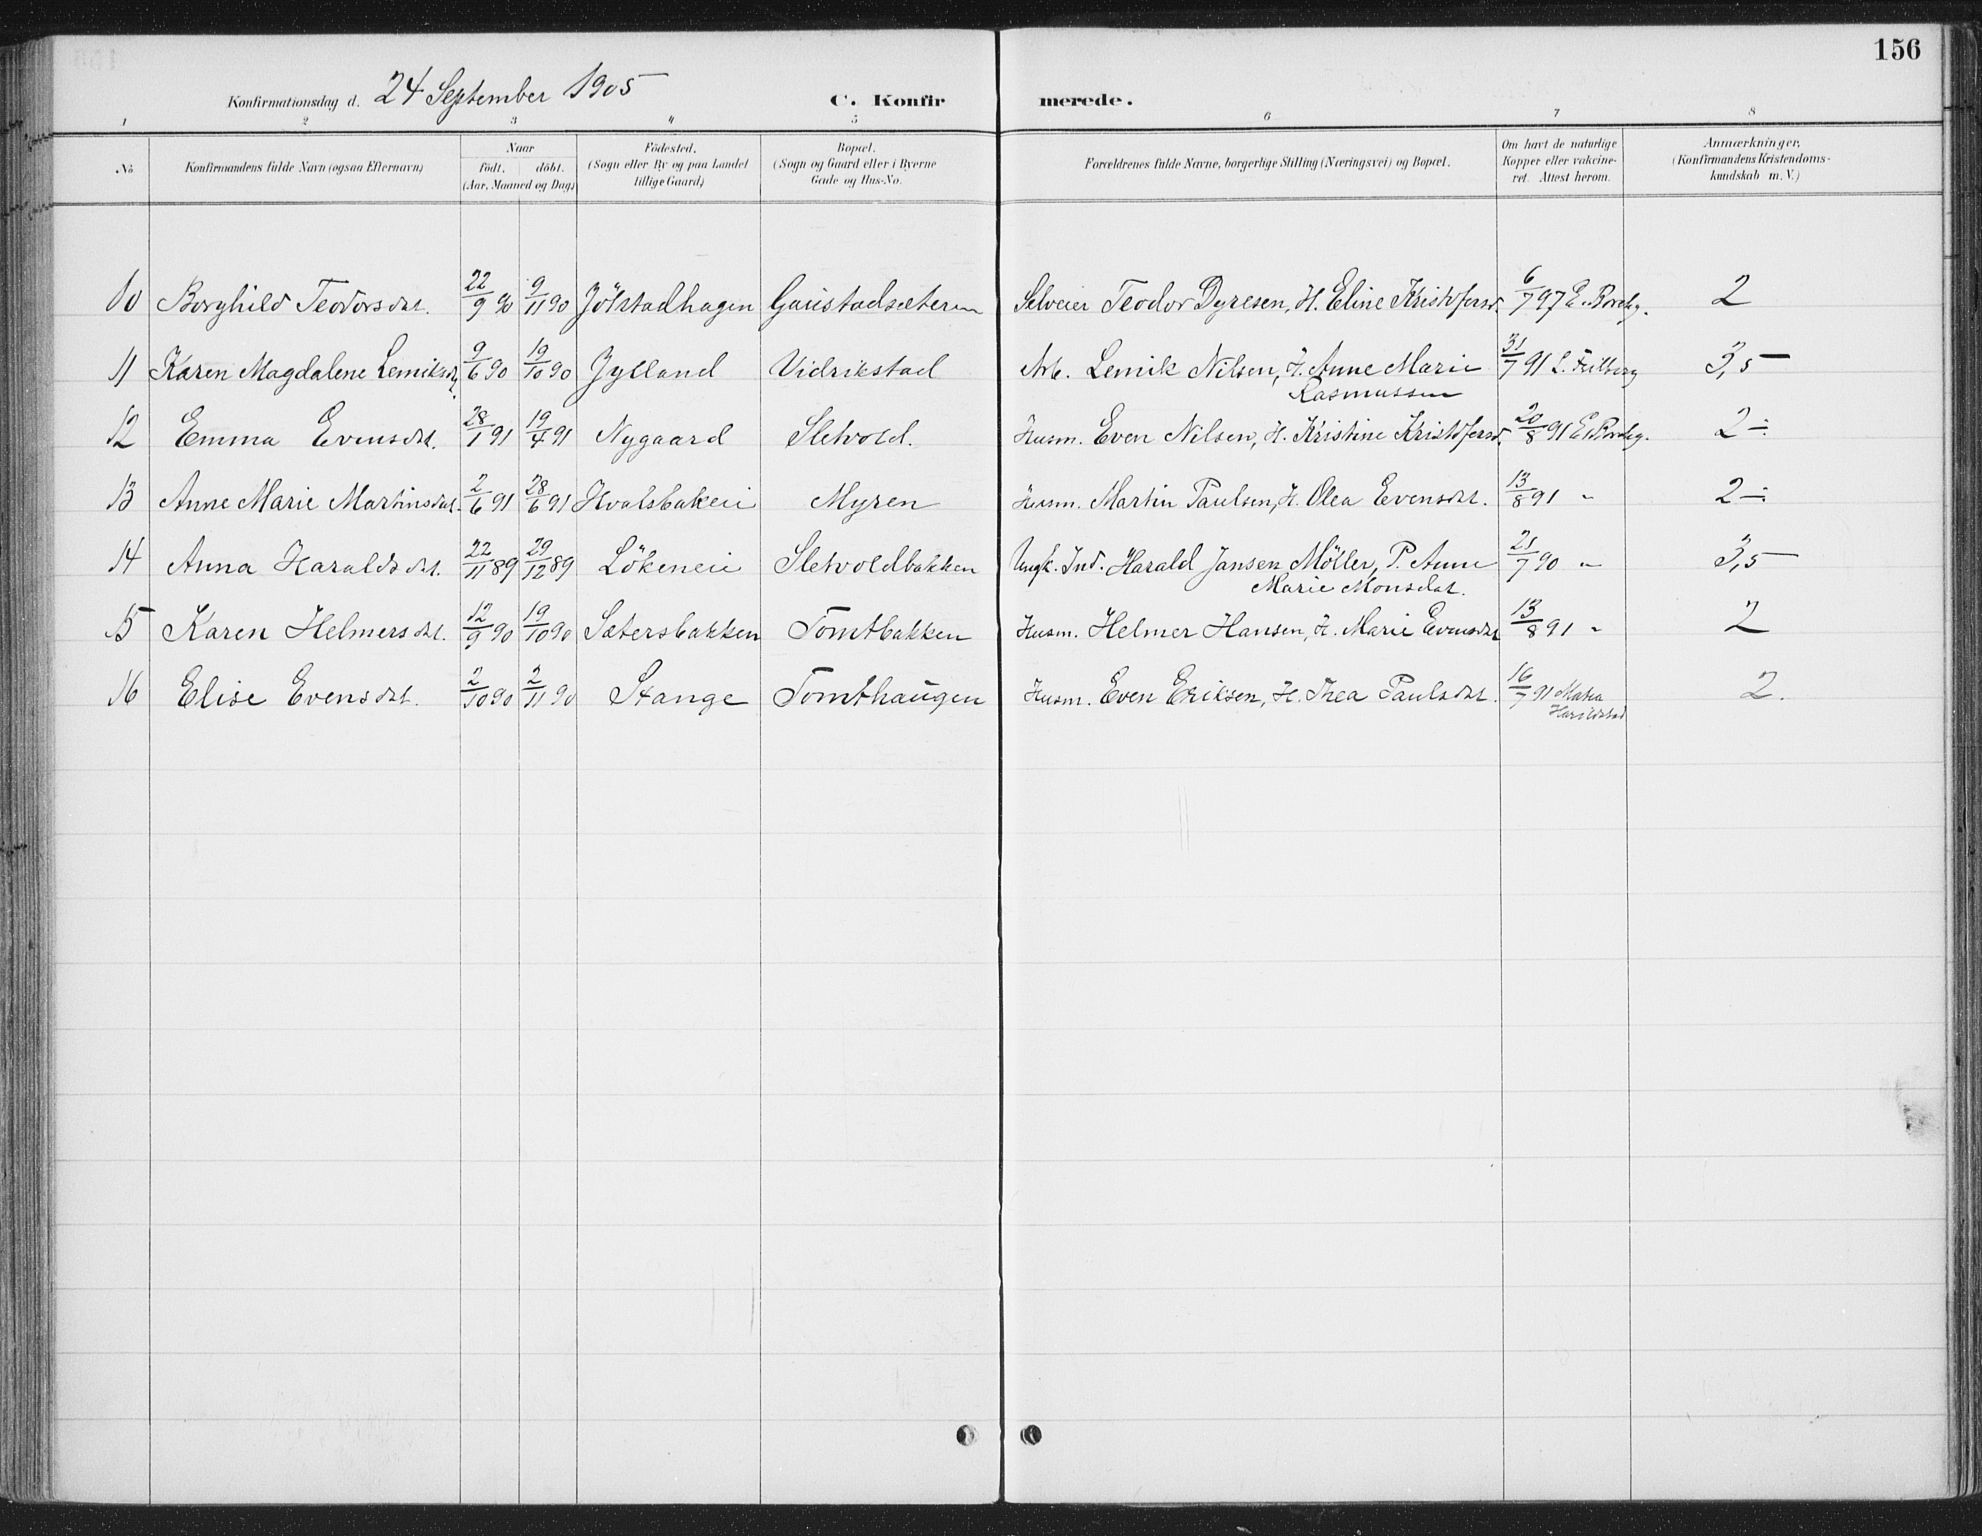 156
Konfirmationsdag d. 24 September 1905 C. Konfirmerede.
1 2 3 4 5 6 7 8
No Konfirmandens fulde Navn (ogsaa Efternavn) Naar födt. döbt. (Aar, Maaned og Dag) Födested. (Sogn eller By og paa Landet tillige Gaard) Bopæl. (Sogn og Gaard eller i Byerne Gade og Hus-No. Forældrenes fulde Navne, borgerlige Stilling (Næringsvei) og Bopæl. Om havt de naturlige Kopper eller vakcineret. Attest herom. Anmærkninger, (Konfirmandens Kristendomskundskab m. V.)
10 Borghild Teodorsdat. 22/9 90 9/11 90 Jölstadhagen Gaustadsæteren Selveier Teodor Dyresen, H. Eline Kristofersd. 6/7 97 2
11 Karen Magdalene Lemiksdt. 9/6 90 19/10 90 Jylland Vidrikstad Arb. Lemik Nilsen, H. Anne Marie 31/7 91 3,5
Rasmussen
12 Emma Evensdt. 28/1 91 19/4 91 Nygaard Sletvold. Husm. Even Nilsen, H. Kristine Kristofersd. 20/8 91 2 ÷
13 Anne Marie Martinsdat. 2/6 91 28/6 91 Hvalsbakeie Myren Husm. Martin Paulsen, H. Olea Evensdt. 13/8 91 " 2 ÷
14 Anna Haraldsdt. 22/11 89 29/12 89 Lökeneie Sletvoldbakken Ungk. Ind. Harald Jansen Möller, P. Anne 21/7 90 " 3,5
Marie Monsdat.
15 Karen Helmersdt. 12/9 90 19/10 90 Sætersbakken Tomtbakken Husm. Helmer Hansen, H. Marie Evensdt 13/8 91 " 2
16 Elise Evensdt. 2/10 90 2/11 90 Stange Tomthaugen Husm. Even Eriksen, H. Thea Paulsdt. 16/7 91 2.